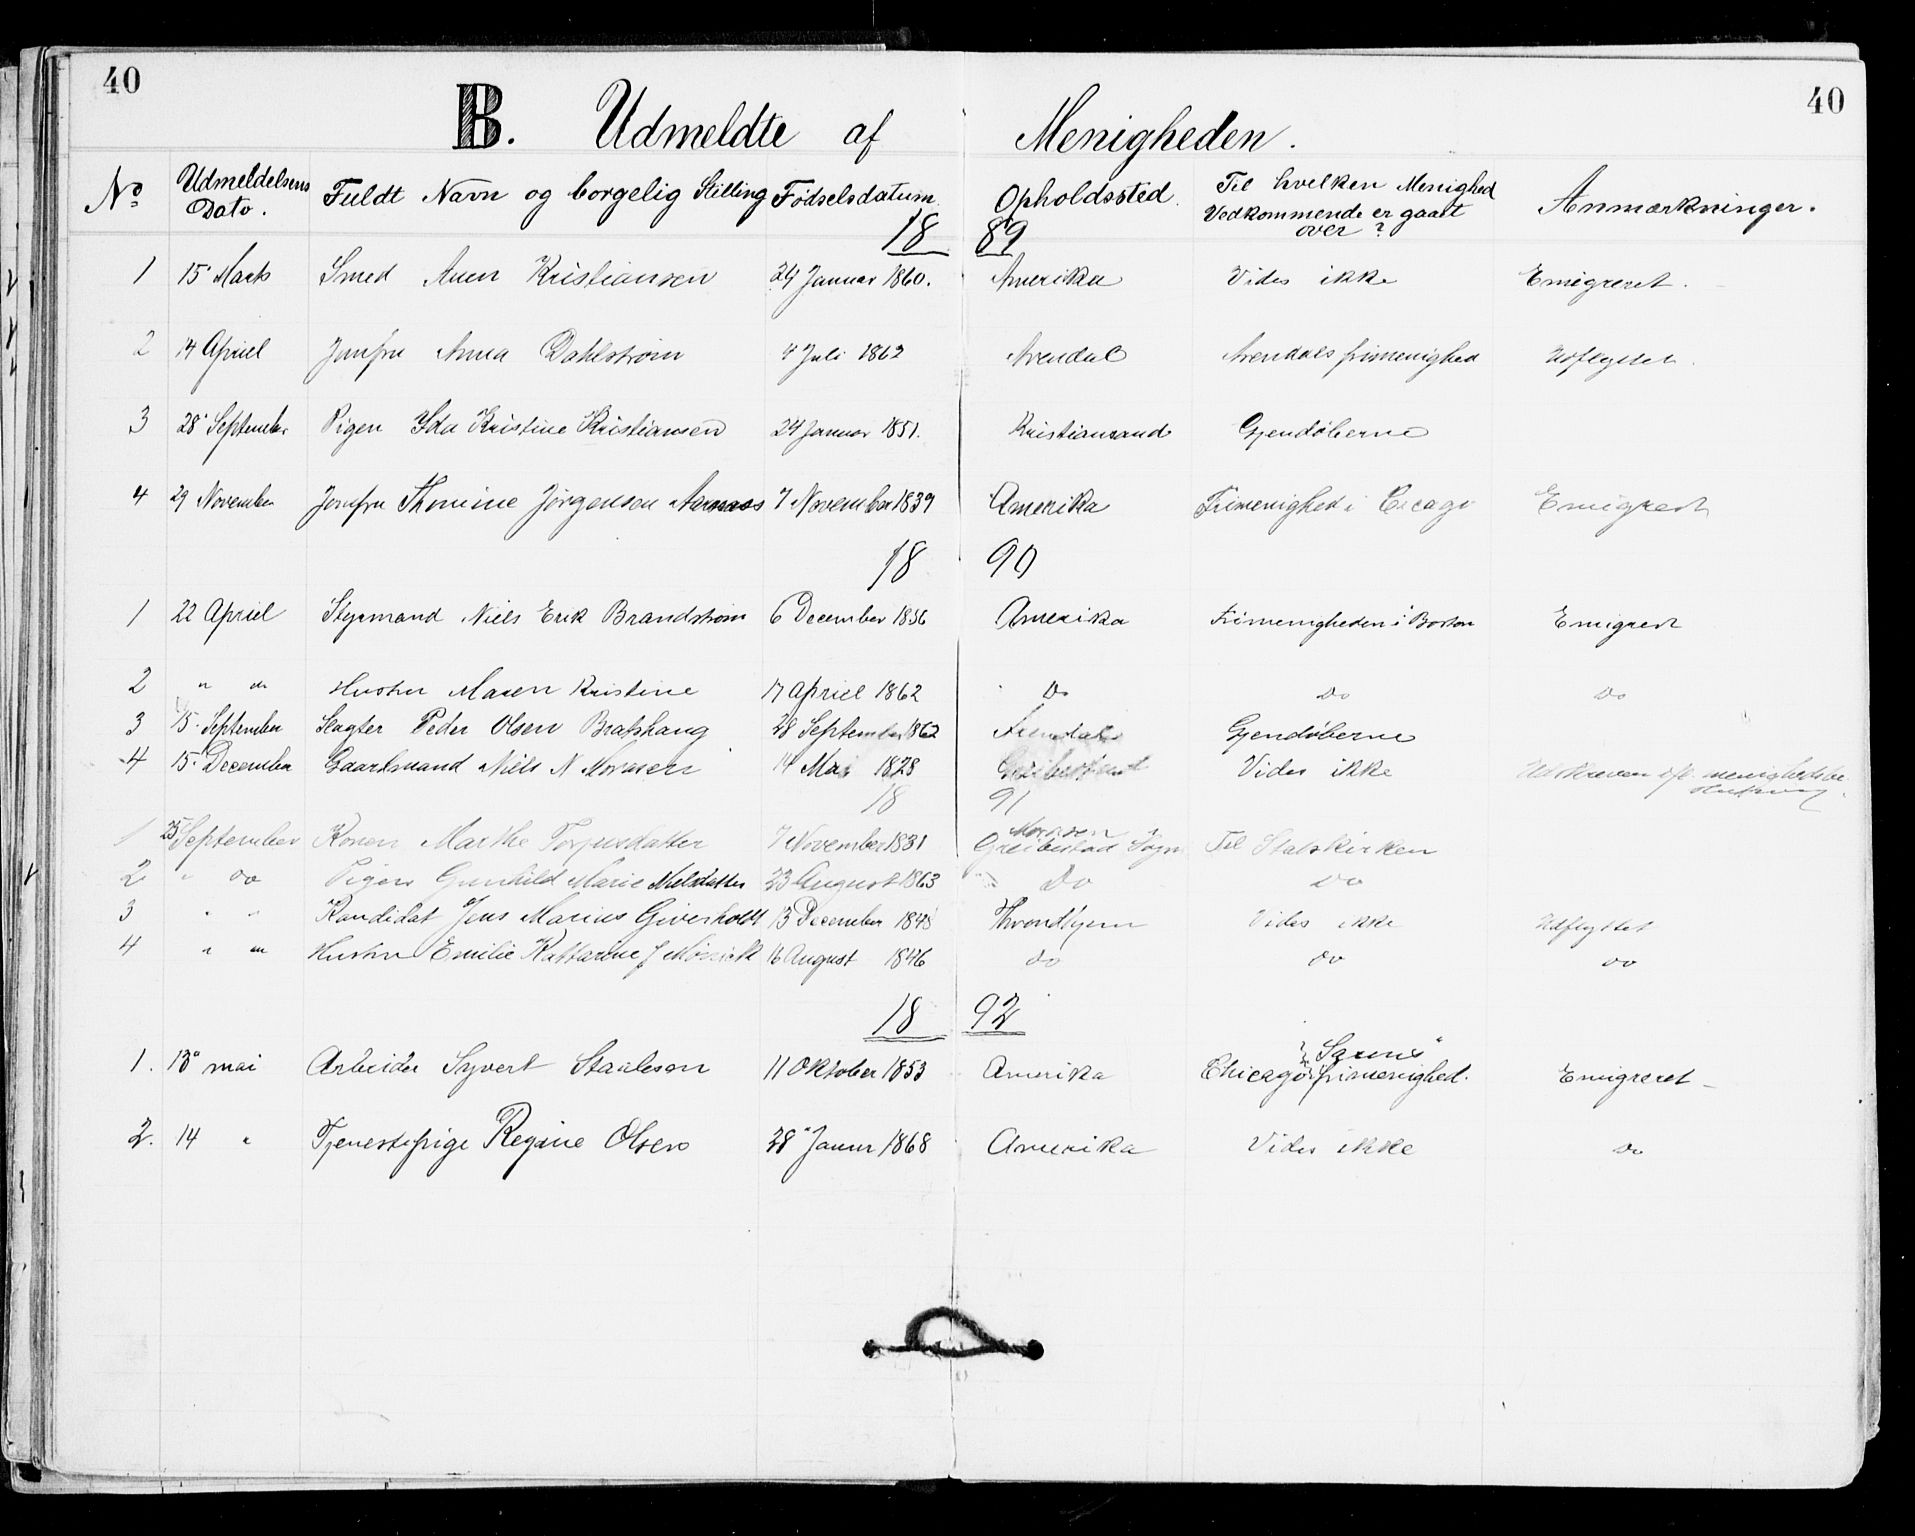 40 40
B. Udmeldte af Menigheden.
No Udmeldelsens Dato. Fuldt Navn og borgelig Stilling Fødselsdatum. Opholdssted. Til hvilken Menighed Vedkommende er gaaet over? Anmærkninger.
18 89
1 15 Marts Smed Aven Kristiansen 24 Januar 1860. Amerika Vides ikke Emigreret.
2 14 Apriel Jomfru Anna Dahlstrøm 4 Juli 1862 Arendal Arendals frimenighed Udflyttet.
3 28 September Pigen Ida Kristine Kristiansen 24 Januar 1851. Kristiansand Gjendøberne
4 29 November Jomfru Thomine Jørgensen 7 November 1839 Amerika Frimenighed i Cicago Emigrert
18 90
1 22 Apriel Styrmand Niels Erik Brandstrøm 6 December 1856 Amerika Frimenigheden i Boston Emigrert
2 " do Hustru Maren Kristine 17 Apriel 1862 Do Do Do
3 15. September Slagter Peder Olsen Bratshaug 28 September 1862 Gjendøberne
4 15. December Gaardmand Niels N Morasen 14 Mai 1828 Vides ikke Udskreven menighedsbe-
18 91
1 25 September Konen Marthe Torjusdatter 7 November 1831 Morasen Greibestad Sogn Til Statskirken
2 " do Pigen Gunhild Marie Nielsdatter 23 August 1863 Do Do
3 " " Kandidat Jens Marius Giverholdt 13 December 1848 Throndhjem Vides ikke Udflyttet
4 " " Hustru Emilie Kattarine J 16 August 1846 do do do
18 92
1. 13 mai Arbeider Syvert Staaleson 11 Oktober 1853 Amerika Chicago frimenighed. Emigreret
2. 14 " Tjenestepige Regine Olsen 28 Januar 1868 Amerika Vides ikke do